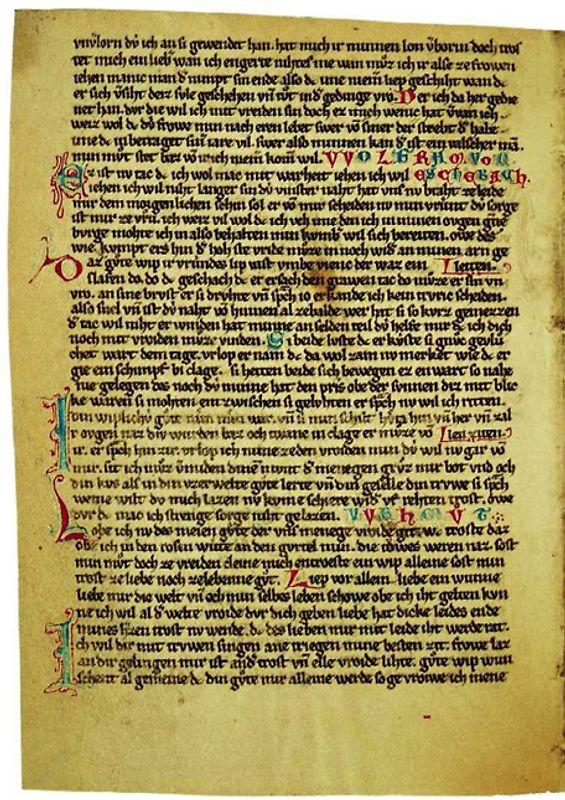 ich an si gewendet han. hat mich ir minnen lon v̄born doch
tet mich ein lieb wan ich engerte nihtes me wan mvz ich ir alse ze frowen
iehen manic man d̾ nimpt sin ende also dc ime niem̄ liep geschiht wan dc
er sich v̾siht der svle geschehen vn̄ gedinge vro. Der ich da her gedie
net han. dvr die wil ich mit vreiden sin doch ez mich wenic hat v̾van ich
weiz wol dc dv̓ frowe min nach eren lebet swer vō siner der strebt d̾ habe
ime dc in betraget sin̄ iare vil. swer also minnen kan d̾ ist ein valscher man.
min mvt stet baz vō ir ich niem̄ kom̄ wil. WOLFRAM. VON
Ez ist nv tac dc ich wol mac mit warheit iehen ich wil ESCHEBACH.
ich wil niht langer sin dv̓ vinster naht hat vns nv braht ze leide
mir dem morgenlichen schin sol er vō mir scheiden nv min vrivnt dv̓ sorge
ist mir ze vrv. ich weiz vil wol dc ich den ich in minen ovgen gne
birge mohte ich in also behalten min kvmb̾ wil sich bereiten. owe des
wie kvmpt ers hin d̾ hohste vride mvze in noch wid̾ an minen arn ge
Daz gv̊te wip ir vrivndes lip vast vmbe vienc der was ein
slafen do. do dc geschach dc er ersach den grawen tac do mvze er sin vn
vro. an sine brvst er si drvhte vn̄ sp̄ch io erkande ich kein trvric scheiden.
also snel vn̄ ist dv̓ naht vō hinnen al zebalde wer hat si so kvrz gemezzen
d̾ tac wil niht erwinden hat minne an selden teil dv̓ helfe mir dc ich dich
noch mit vreiden mvze vinden. Si beide lvste dc er kvste si gnv̊c
chet wart dem tage. vrlop er nam dc da wol zam nv merket wie dc er
gie ein schimpf bi clage. si hetten beide sich bewegen ez en wart so nahe
nie gelegen des noch dv̓ minne hat den pris obe der svnnen dri mit blic
ke waren si mohten entzwischen si gelv̓hten er sp̄ch nv wil ich riten.
din wiplichv̓ gv̊te nem min war. vn̄ si min schilt hv̓te hin vn̄ her vn̄ zal
ir ovgen naz div wurden baz och twanc in clage er mvze vō
ir. er sp̄ch hin zir. vrlop ich nime zeden vreiden min dv̓ wil nv gar vō
mir. sit ich mvz v̾miden dine minne d̾ menegen grvz mir bot vnd och
din kvs als in din vzer welte gv̊te lerte vn̄ din geselle din trvwe si sp̄ch
weme wilt dv mich lazen nv kvme schiere wid̾ vf rehten trost. owe
dvr dc mac ich strenge sorge niht gelazen. WAHMVT
Lobe ich nv des meien gv̊te der vns menege vroide git. we troste daz
obe ich in den rosin witte an den gvrtel min. die towes weren naz. sost
min mv̊t doch ze vreiden cleine mich entroeste ein wip alleine sost min
trost ze liebe noch zelebenne gv̊t. Liep vor allem liebe ein wunne
liebe mir die welt vn̄ och min selbes leben schowe obe ich iht gelten kvn
ne ich wil al d̾ welte vroide dvr dich geben liebe hat dicke leides ende
mines h̾zen trost nv wende. dc des lieben mir mit leide iht werde rat.
Ich wil dir mit trvwen singen ane triegen mine besten zit. frowe laz
an dir gelingen mir ist and̾ trost vn̄ elle vroide lihte. gv̊te wip wun
schent al gemeine dc din gv̊te mir alleine werde so ge vroiwe ich mene